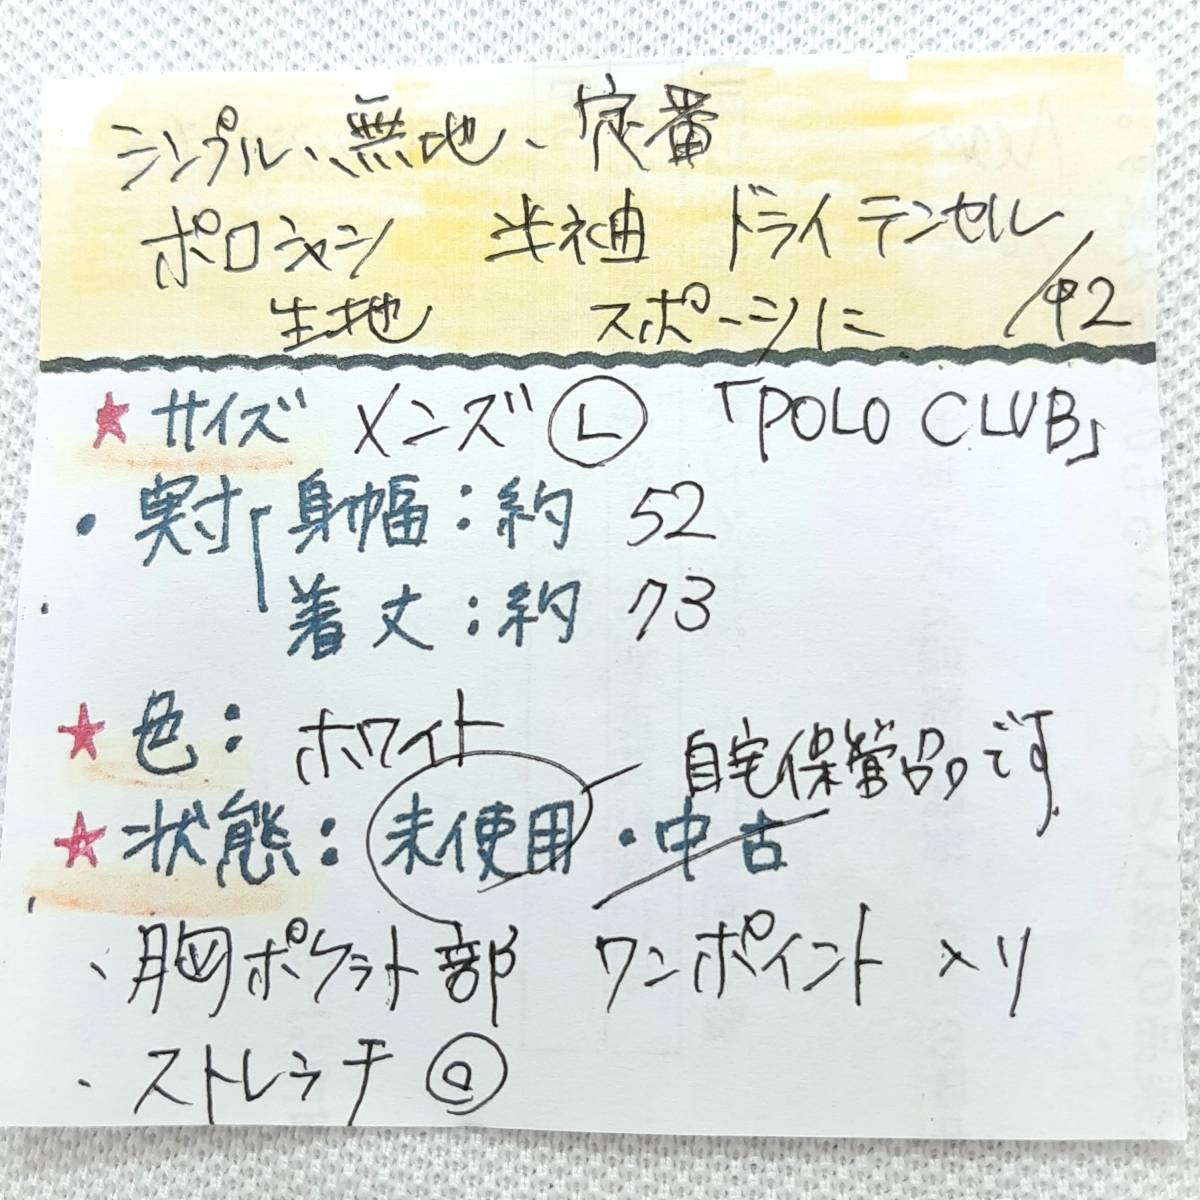 シンプル、無地、定番
ポロシャツ 半袖 ドライテンセル
生地 スポーツに /92
★サイズ メンズ Ⓛ 「POLO CLUB」
・実寸 身幅：約 52
着丈：約 73
★色：ホワイト
自宅保管品です
★状態：未使用・中古
、胸ポケット部 ワンポイント入り
、ストレッチ◎